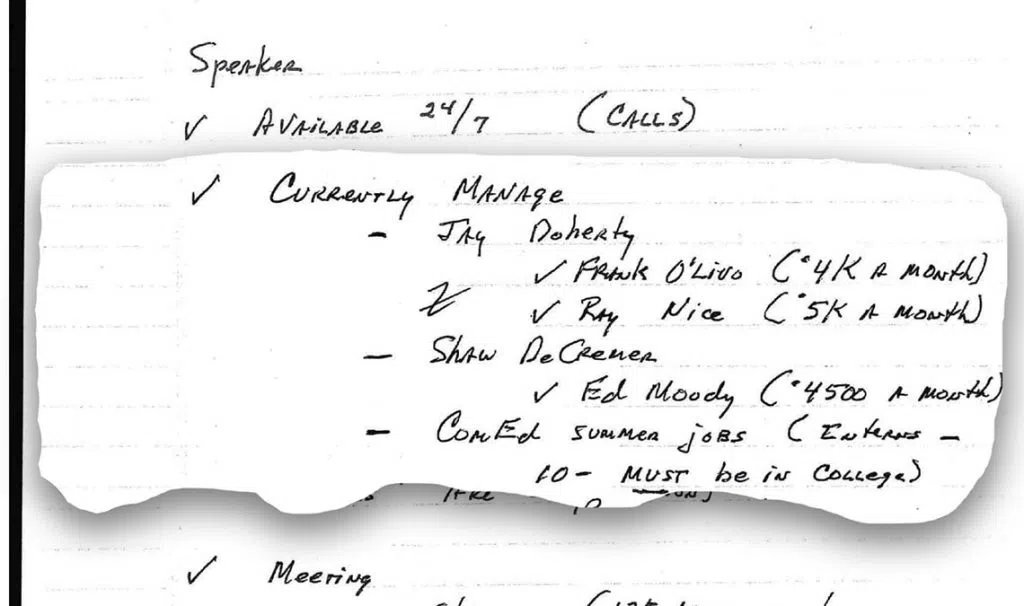 Speaker
✓ Available 24/7 (Calls)
✓ Currently Manage
- Jay Doherty
✓ Frank O'Livo ($4K a month)
✓ Ray Nice ($5K a month)
- Shaw DeCremer
✓ Ed Moody ($4500 a month)
- ComEd summer jobs (Interns -
10 - MUST be in College)
✓ Meeting